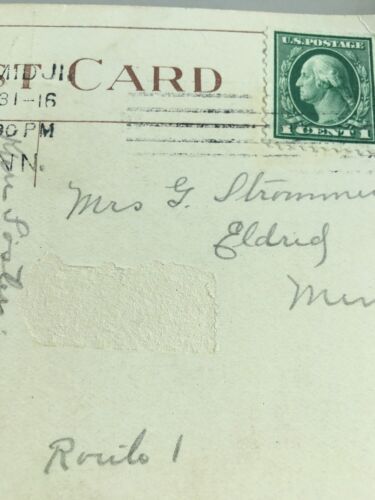 U.S. POSTAGE
ST CARD
MIDJI
31-16
30 PM
NN.
1 CENT 1
Mrs G. Stromme
Eldred
Min
Route 1